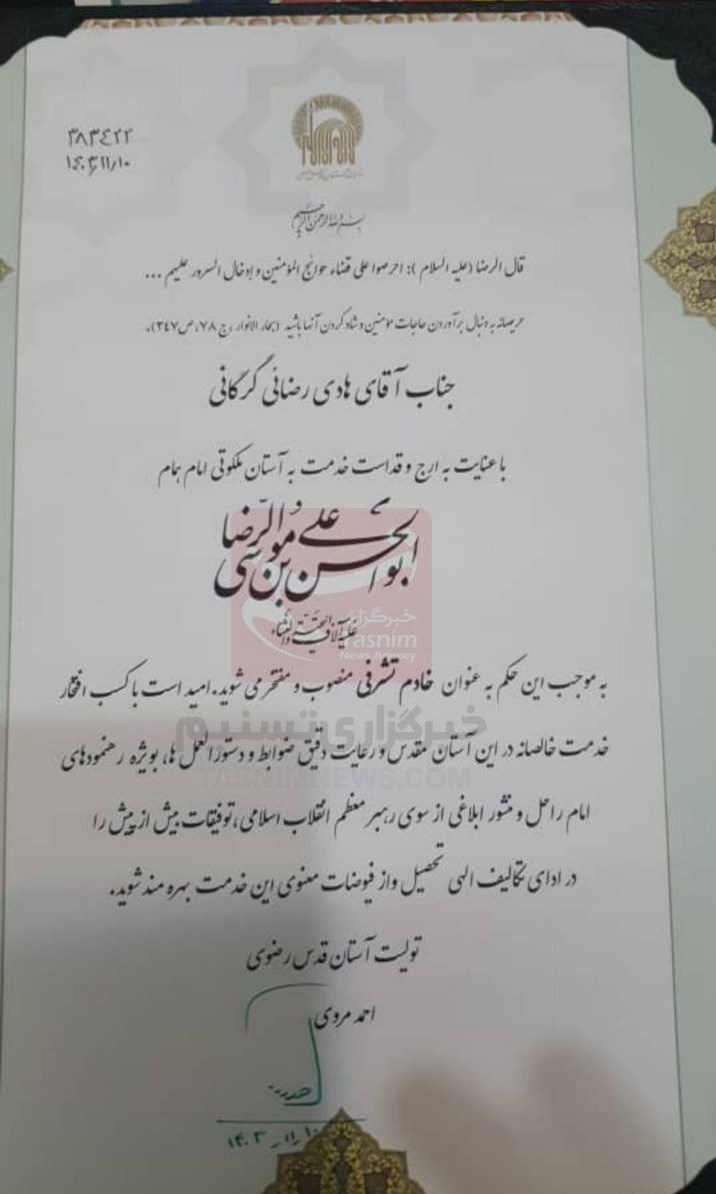 ۳۸۳٤۲۲
۱٤۰۳/۱۱/۱۰
بسم الله الرحمن الرحیم
قال الرضا (علیه السلام): احرصوا علی قضاء حوائج المؤمنین و إدخال السرور علیهم ...
حریصانه به دنبال برآوردن حاجات مؤمنین و شاد کردن آنها باشید (بحار الانوار ، ج ۷۸، ص ۳٤۷).
جناب آقای هادی رضائی گرگانی
با عنایت به ارج و قداست خدمت به آستان ملکوتی امام همام
ابوالحسن علی بن موسی الرضا
علیه آلاف التحیة والثناء
به موجب این حکم به عنوان خادم تشرفی منصوب و مفتخر می شوید. امید است با کسب افتخار
خدمت خالصانه در این آستان مقدس و رعایت دقیق ضوابط و دستورالعمل ها، بویژه رهنمودهای
امام راحل و منشور ابلاغی از سوی رهبر معظم انقلاب اسلامی، توفیقات بیش از پیش را
در ادای تکالیف الهی تحصیل و از فیوضات معنوی این خدمت بهره مند شوید.
تولیت آستان قدس رضوی
احمد مروی
۱۴۰۳/۱۱/۱۰
خبرگزاری
Tasnim
News Agency
خبرگزاری تسنیم
TASNIMNEWS.COM